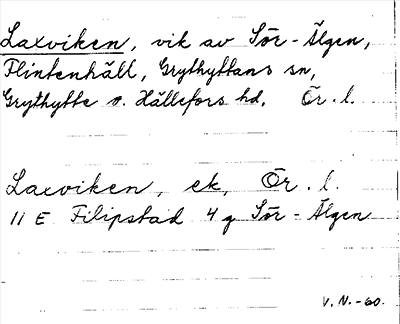 Laxviken, vik av Sör-Älgen,
Flintenhäll, Grythyttans sn,
Grythytte o. Hällefors hd. Ör. l.
Laxviken, ek, Ör. l.
11 E Filipstad 4 g Sör-Älgen
V. N. -60.